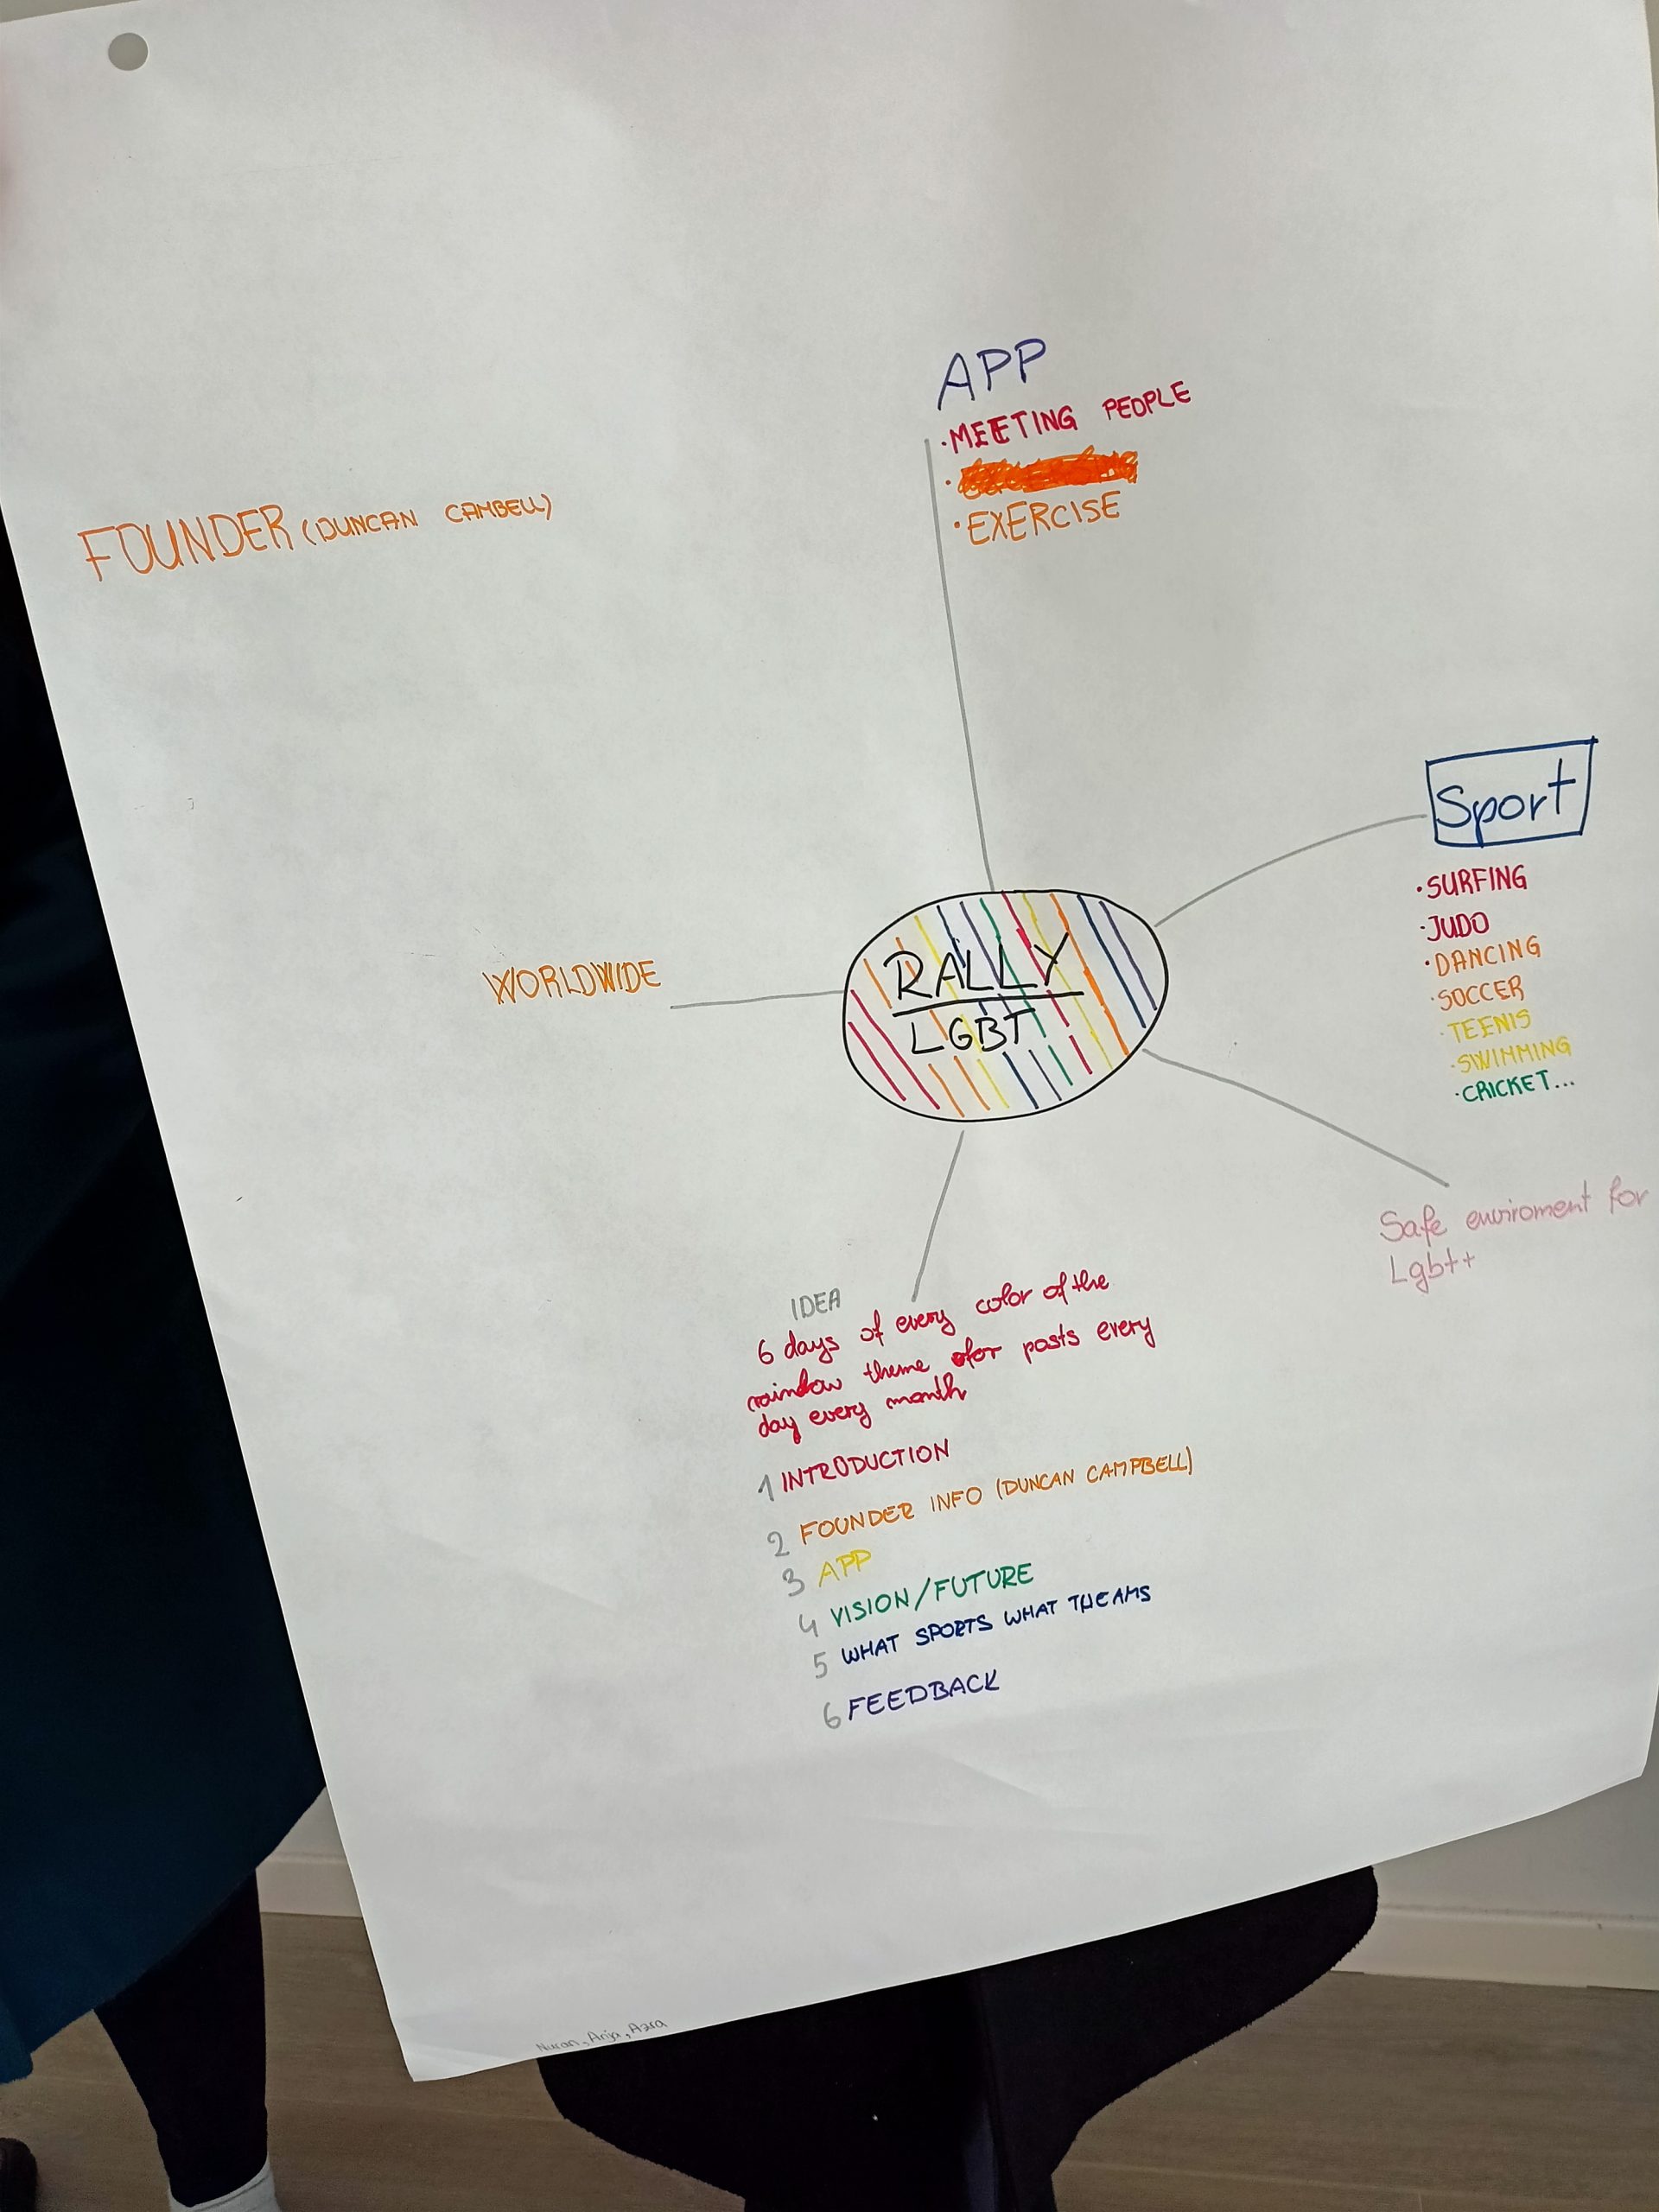 APP
·MEETING PEOPLE
·EXERCISE
FOUNDER (DUNCAN CAMBELL)
Sport
·SURFING
·JUDO
·DANCING
·SOCCER
·TEENIS
·SWIMMING
·CRICKET...
RALLY
LGBT
WORLDWIDE
Safe enviroment for
Lgbt++
IDEA
6 days of every color of the
rainbow theme for posts every
day every month
1 INTRODUCTION
2 FOUNDER INFO (DUNCAN CAMPBELL)
3 APP
4 VISION/FUTURE
5 WHAT SPORTS WHAT THEAMS
6 FEEDBACK
Nuran, Anja, Azra